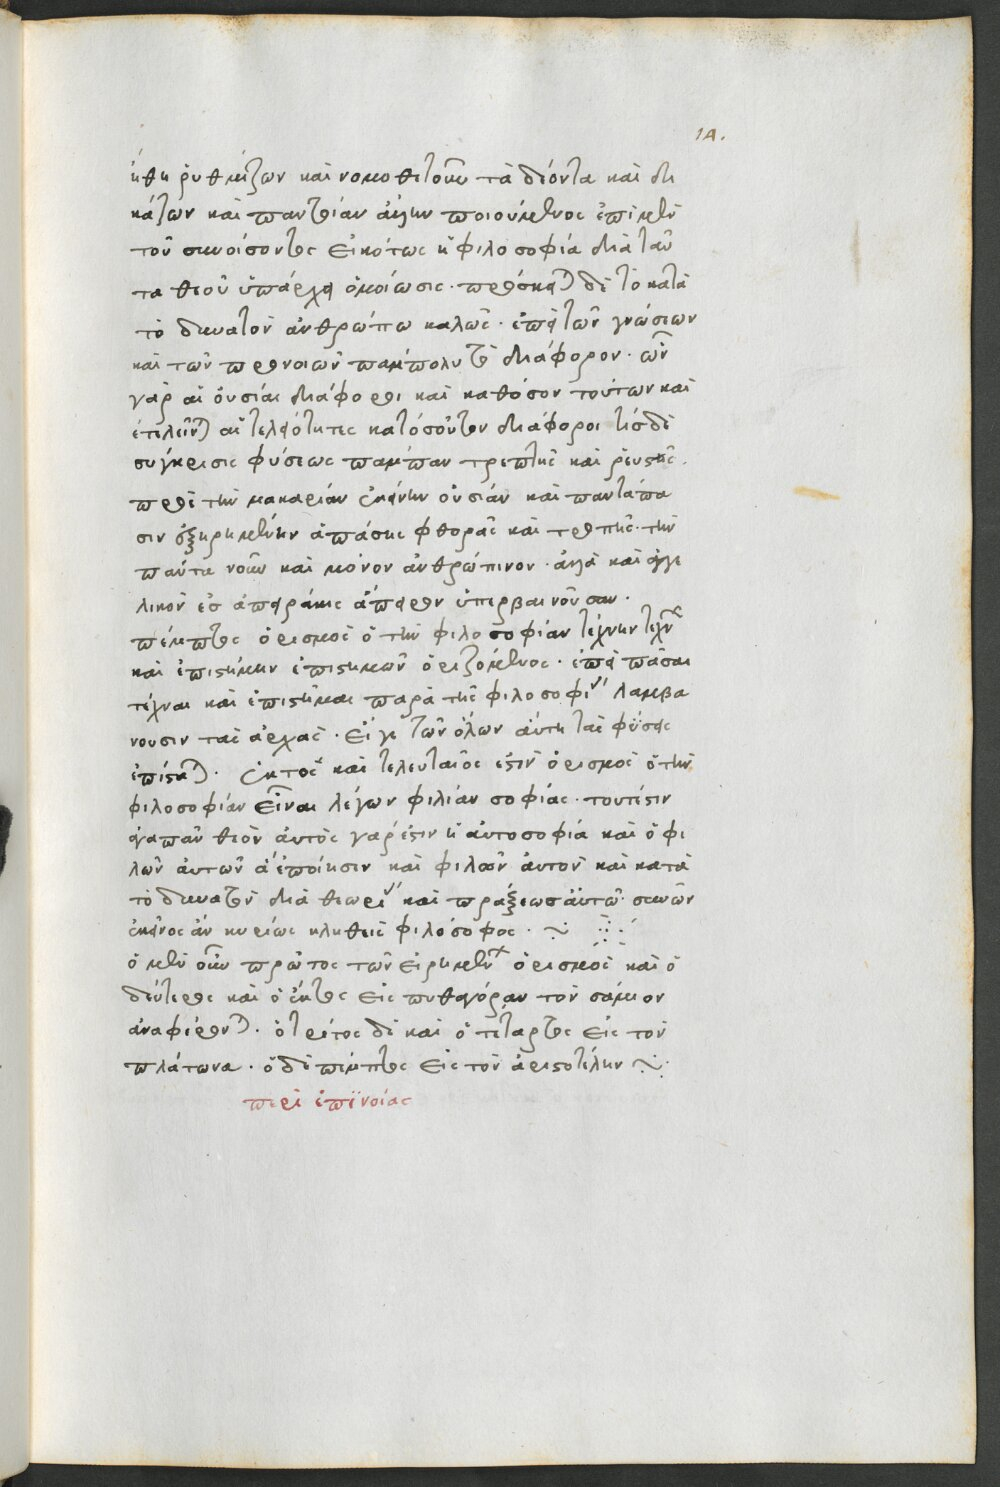 14.
ἤθη ῥυθμίζων καὶ νομοθετῶν τὰ δέοντα καὶ δι
κάζων καὶ παντοίαν ποιούμενος ἐπὶ μὲν
τοῦ συνοίσοντος εἰκότως ἡ φιλοσοφία διὰ ταῦ
τα θεοῦ ὑπάρχει ὁμοίωσις. πρόσκειται δὲ τὸ κατὰ
τὸ δυνατὸν ἀνθρώπω καλῶς. ἐπεὶ τῶν γνώσεων
καὶ τῶν προνοιῶν πάμπολυ τὸ διάφορον. ὧν
γὰρ αἱ οὐσίαι διάφοροι καὶ καθόσον τούτων καὶ
αἱ τελειότητες κατόσοῦτον διάφοροι τίς δὲ
σύγκρισις φύσεως πάμπαν τρεπτῆς καὶ ῥευστῆς.
πρὸς τὴν μακαρίαν ἐκείνην οὐσίαν καὶ παντάπα
σιν ἐξῃρημένην ἁπάσης φθορᾶς καὶ τροπῆς. τὴν
πάντα νοῦν καὶ μόνον ἀνθρώπινον. ἀλλὰ καὶ ἀγγε
λικὸν ἐσ ἀπειράκις ἄπειρον ὑπερβαινοῦσαν.
πέμπτος ὁρισμὸς ὁ τὴν φιλοσοφίαν τέχνην τεχνῶν
καὶ ἐπιστήμην ἐπιστημῶν ὁριζόμενος. ἐπεὶ πᾶσαι
τέχναι καὶ ἐπιστῆμαι παρὰ τῆς φιλοσοφίας λαμβά
νουσιν τὰς ἀρχάς. εἴ γε τῶν ὅλων αὕτη τὰς φύσεις
ἐπίσταται. ἕκτος καὶ τελευταῖός ἐστιν ὁρισμὸς ὁ τὴν
φιλοσοφίαν εἶναι λέγων φιλίαν σοφίας. τουτέστιν
ἀγαπᾶν θεὸν αὐτὸς γάρ ἐστιν ἡ αὐτοσοφία καὶ ὁ φι
λῶν αὐτῶν ἃ ἐποίησεν καὶ φιλῶν αὐτὸν καὶ κατὰ
τὸ δυνατὸν διὰ θεωρίας καὶ πράξεως αὐτῶ συνὼν
ἐκεῖνος ἂν κυρίως κληθείς φιλόσοφος.
ὁ μὲν οὖν πρῶτος τῶν εἰρημένων ὁρισμὸς καὶ ὁ
δεύτερος καὶ ὁ ἕκτος εἰς πυθαγόραν τὸν σάμιον
ἀναφέρονται. ὁ τρίτος δὲ καὶ ὁ τέταρτος εἰς τὸν
πλάτωνα. ὁ δὲ πέμπτος εἰς τὸν ἀριστοτέλην
περὶ ἐπϊνοίας